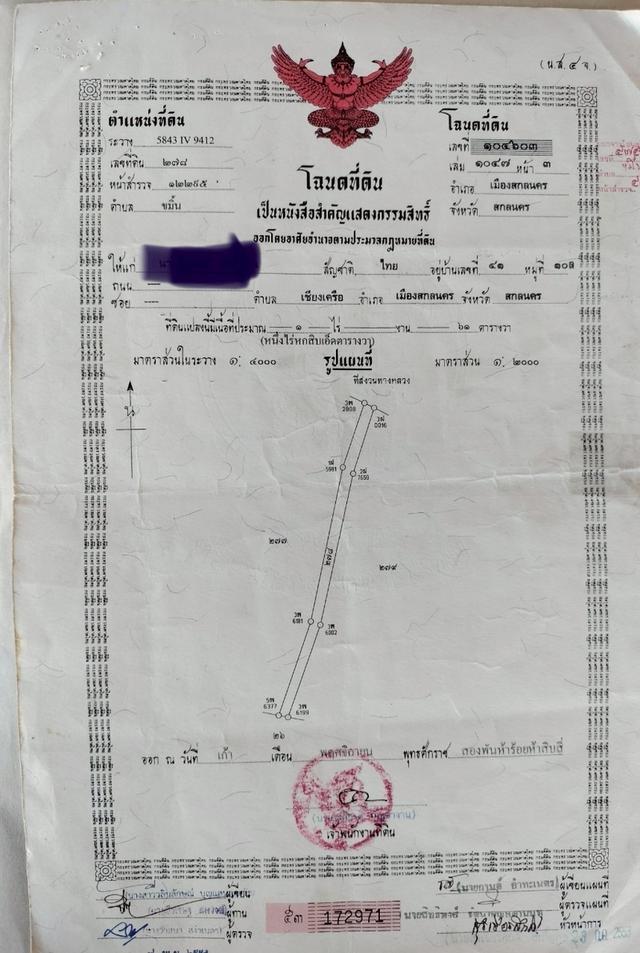 (น.ส.๔ จ.)
ตำแหน่งที่ดิน
ระวาง 5843 IV 9412
เลขที่ดิน ๒๗๘
หน้าสำรวจ ๑๒๒๙๕
ตำบล ขมิ้น
โฉนดที่ดิน
เลขที่ ๑๐๔๖๐๓
เล่ม ๑๐๔๗ หน้า ๓
อำเภอ เมืองสกลนคร
จังหวัด สกลนคร
โฉนดที่ดิน
เป็นหนังสือสำคัญแสดงกรรมสิทธิ์
ออกโดยอาศัยอำนาจตามประมวลกฎหมายที่ดิน
ให้แก่ สัญชาติ ไทย อยู่บ้านเลขที่ ๔๑ หมู่ที่
ถนน —
ซอย — ตำบล เชียงเครือ อำเภอ เมืองสกลนคร จังหวัด สกลนคร
ที่ดินแปลงนี้มีเนื้อที่ประมาณ ๑ ไร่ — งาน ๖๑ ตารางวา
(หนึ่งไร่หกสิบเอ็ดตารางวา)
มาตราส่วนในระวาง ๑: ๔๐๐๐ รูปแผนที่ มาตราส่วน ๑: ๒๐๐๐
ที่สงวนทางหลวง
น
วพ
วฝ
0016
5981
วฝ
7659
๒๗๗
๒๗๘
๒๗๙
วพ
6181
วพ
6377
วพ
6199
๒๖
ออก ณ วันที่ เก้า เดือน พฤศจิกายน พุทธศักราช สองพันห้าร้อยห้าสิบสี่
เจ้าพนักงานที่ดิน
ผู้เขียน
ผู้ทาน
ผู้ตรวจ
๕๓ 172971
ผู้เขียนแผนที่
ผู้ตรวจแผนที่
หัวหน้าการ